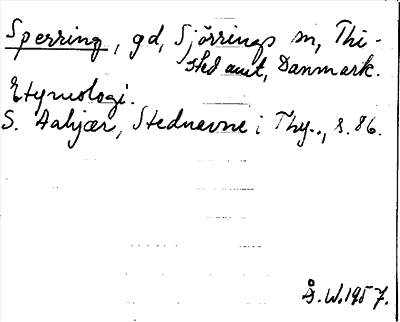 Sperring, gd, Sjörrings sn, Thi-
sted amt, Danmark.
Etymologi.
S. Aakjær, Stednavne i Thy., s. 86.
Å. W. 1957.